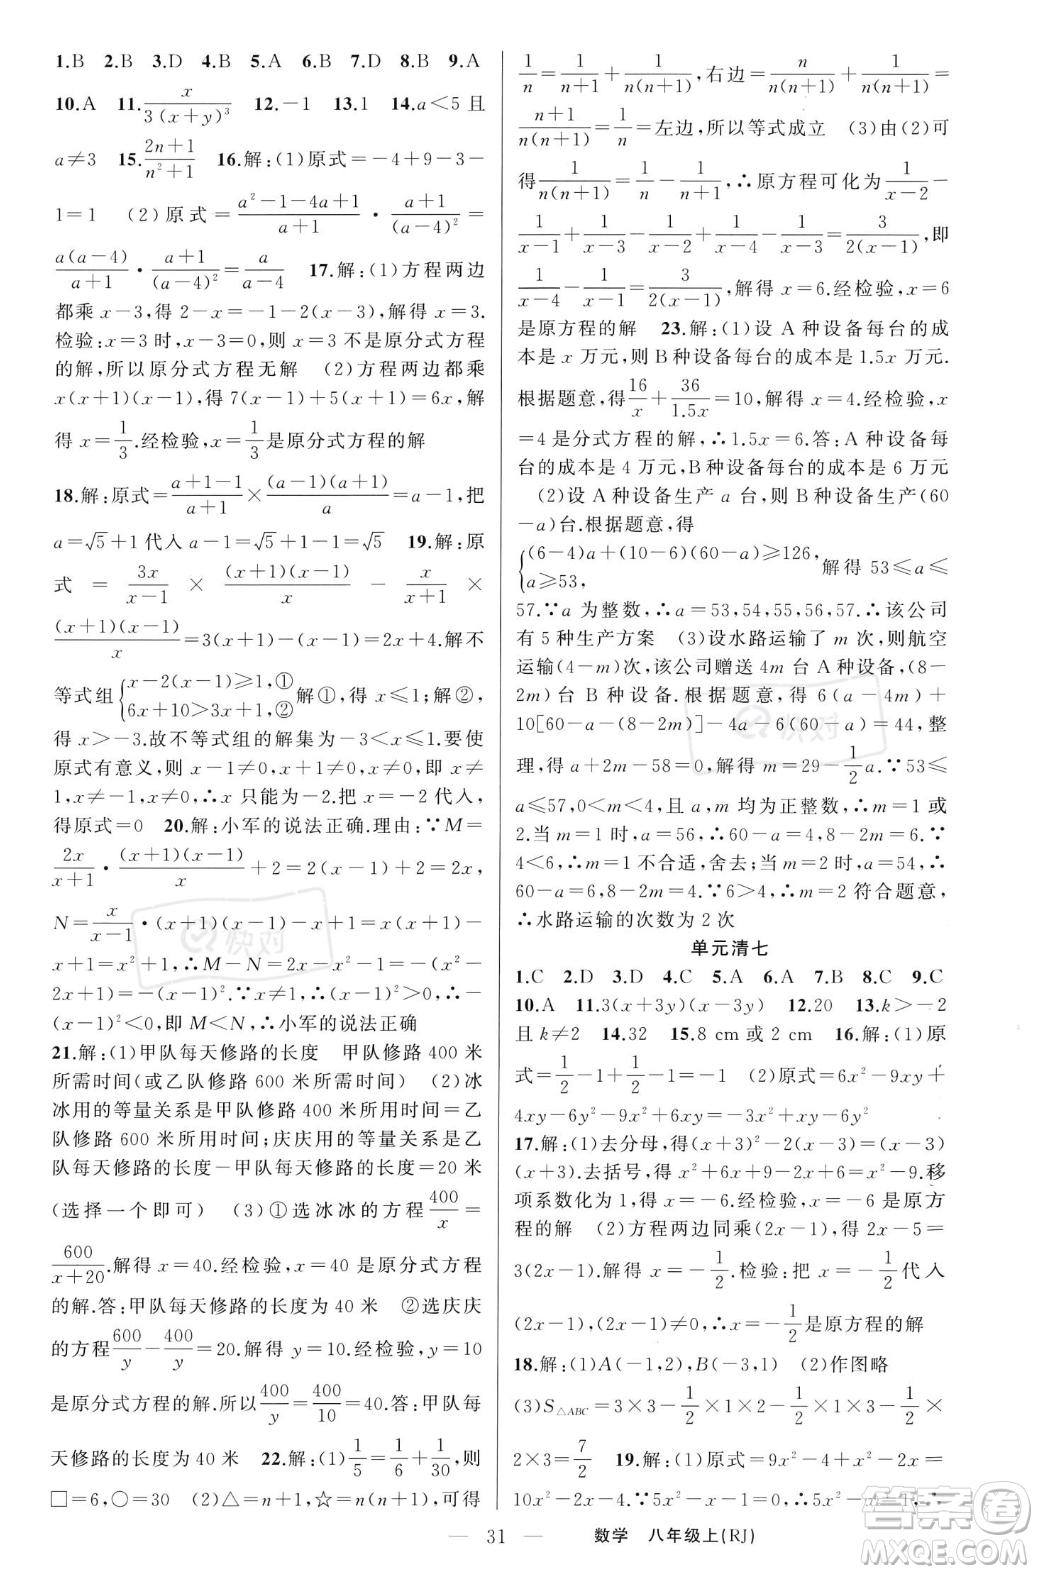 1.B 2.B 3.D 4.B 5.A 6.B 7.B 8.B 9.A
10.A 11.x/3(x+y)³ 12.-1 13.1 14.a<5且
a≠3 15.2n+1/n²+1 16.解:(1)原式=-4+9-3-
1=1 (2)原式=a²-1-4a+1/a+1·a+1/(a-4)²=
a(a-4)/a+1·a+1/(a-4)²=a/a-4 17.解:(1)方程两边
都乘x-3,得2-x=-1-2(x-3),解得x=3.
检验:x=3时,x-3=0,则x=3不是原分式方程
的解,所以原分式方程无解 (2)方程两边都乘
x(x+1)(x-1),得7(x-1)+5(x+1)=6x,解
得x=1/3.经检验,x=1/3是原分式方程的解
18.解:原式=a+1-1/a+1×(a-1)(a+1)/a=a-1,把
a=√5+1代入a-1=√5+1-1=√5 19.解:原
式=3x/x-1×(x+1)(x-1)/x-x/x+1×
(x+1)(x-1)/x=3(x+1)-(x-1)=2x+4.解不
等式组{x-2(x-1)≥1,① 6x+10>3x+1,②解①,得x≤1;解②,
得x>-3.故不等式组的解集为-3<x≤1.要使
原式有意义,则x-1≠0,x+1≠0,x≠0,即x≠
1,x≠-1,x≠0,∴x只能为-2.把x=-2代入,
得原式=0 20.解:小军的说法正确.理由:∵M=
2x/x+1·(x+1)(x-1)/x+2=2(x-1)+2=2x,
N=x/x-1·(x+1)(x-1)-(x-1)=x(x+1)-
x+1=x²+1,∴M-N=2x-(x²+1)=-(x²-
2x+1)=-(x-1)².∵x≠1,∴(x-1)²>0,∴-(x-
1)²<0,即M<N,∴小军的说法正确
21.解:(1)甲队每天修路的长度 甲队修路400米
所需时间(或乙队修路600米所需时间) (2)冰
冰用的等量关系是甲队修路400米所用时间=乙
队修路600米所用时间;庆庆用的等量关系是乙
队每天修路的长度-甲队每天修路的长度=20米
(选择一个即可) (3)①选冰冰的方程400/x=
600/x+20.解得x=40.经检验,x=40是原分式方程
的解.答:甲队每天修路的长度为40米 ②选庆庆
的方程600/y-400/y=20.解得y=10.经检验,y=10
是原分式方程的解,所以400/y=400/10=40.答:甲队每
天修路的长度为40米 22.解:(1)1/5=1/6+1/30,则
□=6,○=30 (2)△=n+1,☆=n(n+1),可得
1/n=1/n+1+1/n(n+1),右边=n/n(n+1)+1/n(n+1)=
n+1/n(n+1)=1/n=左边,所以等式成立 (3)由(2)可
得1/n(n+1)=1/n-1/n+1,∴原方程可化为1/x-2-
1/x-1+1/x-3-1/x-2+1/x-4-1/x-3=3/2(x-1),即
1/x-4-1/x-1=3/2(x-1),解得x=6.经检验,x=6
是原方程的解 23.解:(1)设A种设备每台的成
本是x万元,则B种设备每台的成本是1.5x万元.
根据题意,得16/x+36/1.5x=10,解得x=4.经检验,x
=4是分式方程的解,∴1.5x=6.答:A种设备每
台的成本是4万元,B种设备每台的成本是6万元
(2)设A种设备生产a台,则B种设备生产(60
-a)台.根据题意,得
{(6-4)a+(10-6)(60-a)≥126, a≥53,解得53≤a≤
57.∵a为整数,∴a=53,54,55,56,57.∴该公司
有5种生产方案 (3)设水路运输了m次,则航空
运输(4-m)次,该公司赠送4m台A种设备,(8-
2m)台B种设备.根据题意,得6(a-4m)+
10[60-a-(8-2m)]-4a-6(60-a)=44,整
理,得a+2m-58=0,解得m=29-1/2a.∵53≤
a≤57,0<m<4,且a,m均为正整数,∴m=1或
2.当m=1时,a=56,∴60-a=4,8-2m=6.∵
4<6,∴m=1不合适,舍去;当m=2时,a=54,∴
60-a=6,8-2m=4.∵6>4,∴m=2符合题意,
∴水路运输的次数为2次
单元清七
1.C 2.D 3.D 4.C 5.A 6.A 7.B 8.C 9.C
10.A 11.3(x+3y)(x-3y) 12.20 13.k>-2
且k≠2 14.32 15.8 cm或2 cm 16.解:(1)原
式=1/2-1+1/2-1=-1 (2)原式=6x²-9xy+
4xy-6y²-9x²+6xy-y²=-3x²+xy-7y²
17.解:(1)去分母,得(x+3)²-2(x-3)=(x-3)
(x+3).去括号,得x²+6x+9-2x+6=x²-9.移
项系数化为1,得x=-6.经检验,x=-6是原方
程的解 (2)方程两边同乘(2x-1),得2x-5=
3(2x-1),解得x=-1/2.检验:把x=-1/2代入
(2x-1),(2x-1)≠0,∴x=-1/2是原方程的解
18.解:(1)A(-1,2),B(-3,1) (2)作图略
(3)S△ABC=3×3-1/2×1×2-1/2×1×3-1/2×
2×3=7/2 19.解:(1)原式=9x²-4+x²-2x=
10x²-2x-4.∵5x²-x-1=0,∴5x²-x=1,∴
31 数学 八年级上(RJ)
快对
快对
答案圈
MXQE.COM